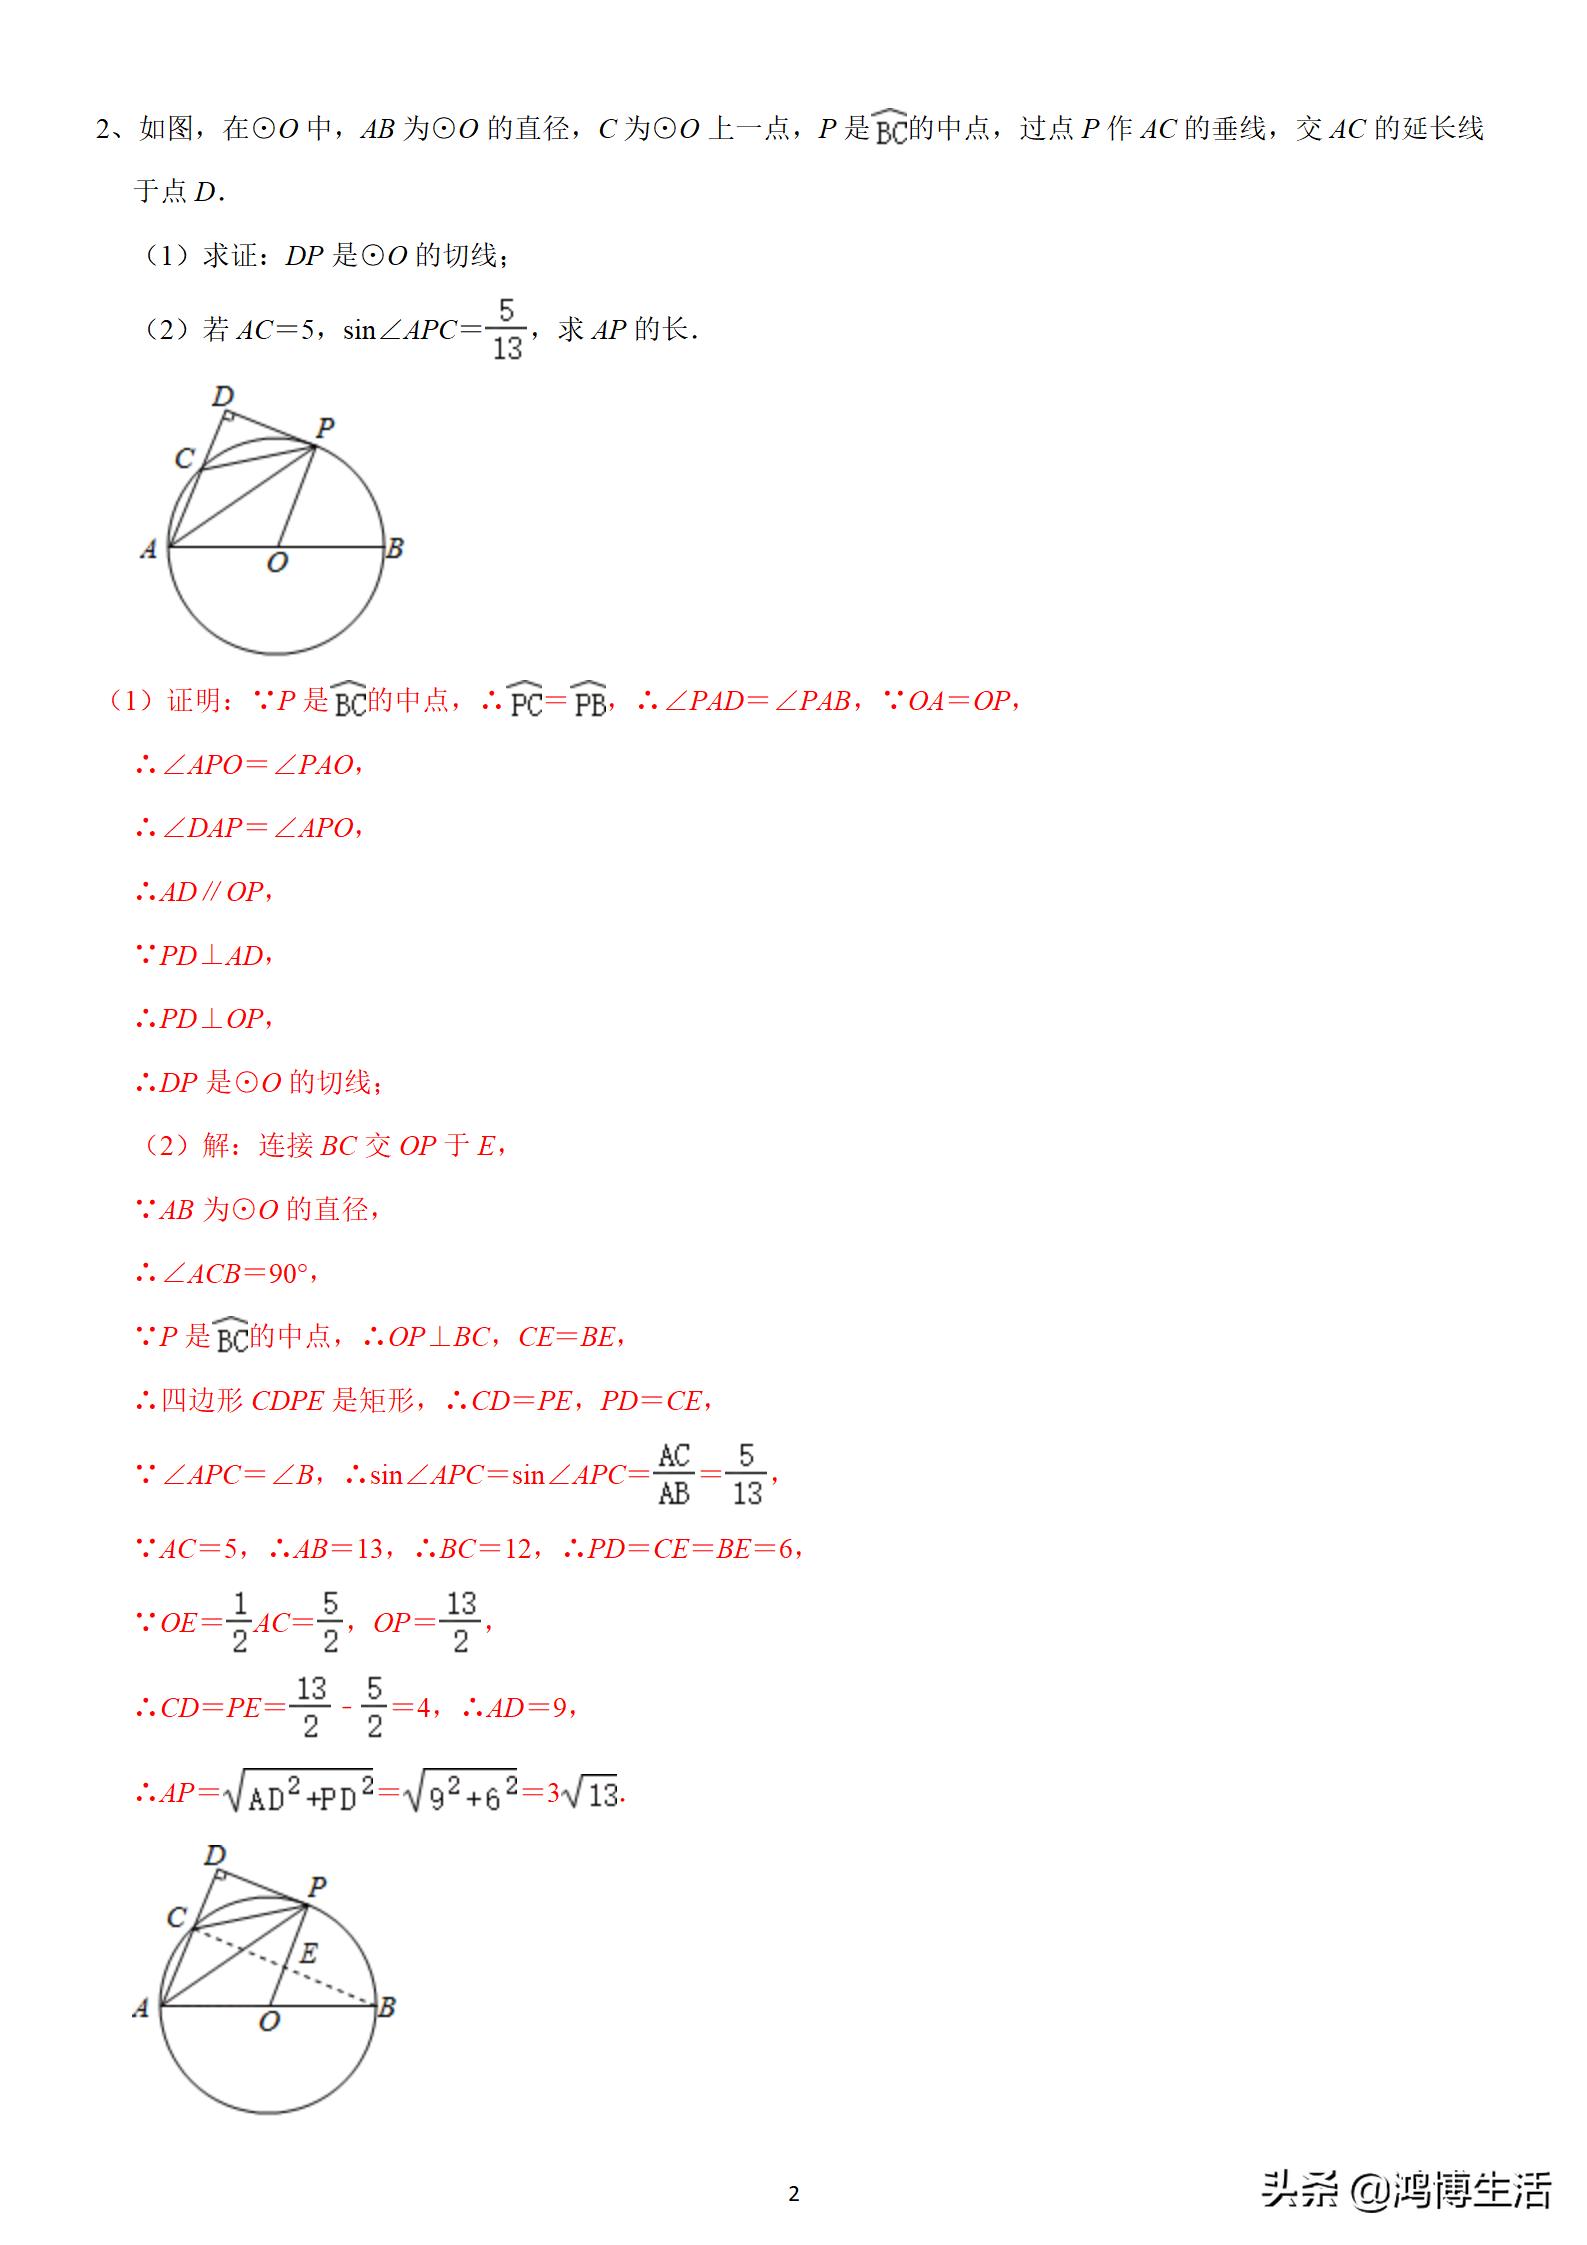 2、如图，在⊙O中，AB为⊙O的直径，C为⊙O上一点，P是BC的中点，过点P作AC的垂线，交AC的延长线
于点D．
（1）求证：DP是⊙O的切线；
（2）若AC＝5，sin∠APC＝5/13，求AP的长．
D
P
C
A
O
B
（1）证明：∵P是BC的中点，∴PC＝PB，∴∠PAD＝∠PAB，∵OA＝OP，
∴∠APO＝∠PAO，
∴∠DAP＝∠APO，
∴AD∥OP，
∵PD⊥AD，
∴PD⊥OP，
∴DP是⊙O的切线；
（2）解：连接BC交OP于E，
∵AB为⊙O的直径，
∴∠ACB＝90°，
∵P是BC的中点，∴OP⊥BC，CE＝BE，
∴四边形CDPE是矩形，∴CD＝PE，PD＝CE，
∵∠APC＝∠B，∴sin∠APC＝sin∠APC＝AC/AB＝5/13，
∵AC＝5，∴AB＝13，∴BC＝12，∴PD＝CE＝BE＝6，
∵OE＝1/2AC＝5/2，OP＝13/2，
∴CD＝PE＝13/2﹣5/2＝4，∴AD＝9，
∴AP＝√(AD²+PD²)＝√(9²+6²)＝3√13．
D
P
C
E
A
O
B
2
头条 @鸿博生活